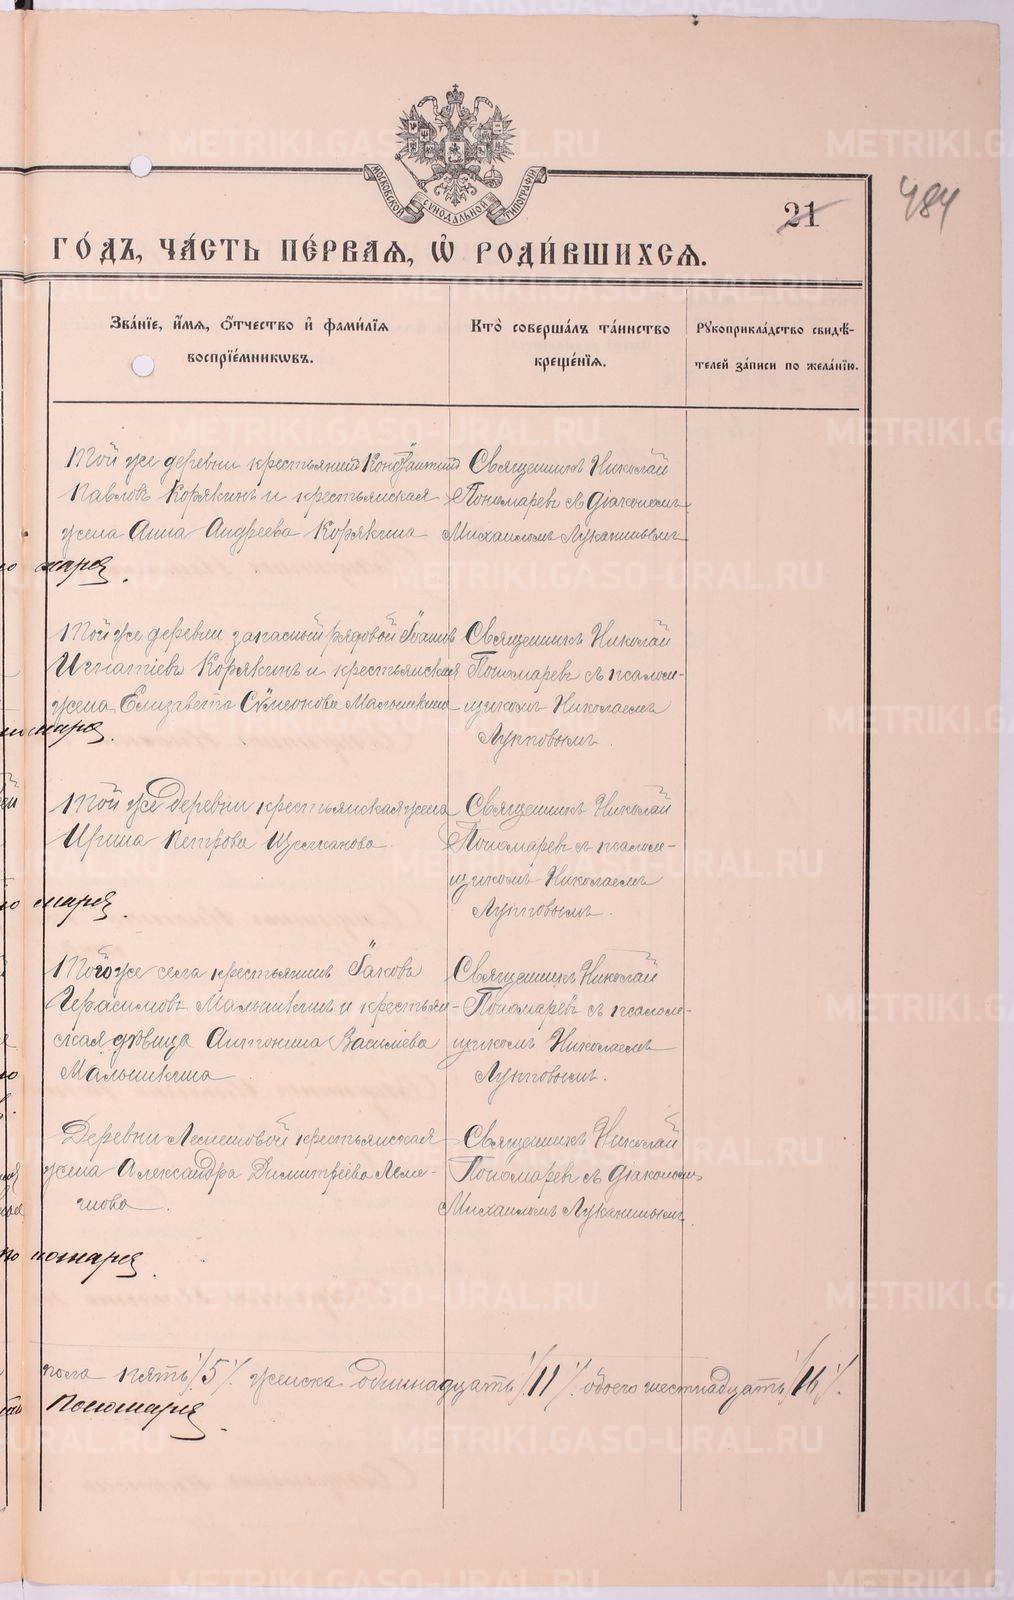 МОСКОВСКОЙ СѴНОДАЛЬНОЙ ТИПОГРАФІИ
21
484
ГО́ДЪ, ЧА́СТЬ ПЕ́РВАЯ, Ѡ҆ РОДИ́ВШИХСЯ.
Зва́нїе, и҆́мя, ѻ҆́тчество и҆ фами́лїя
воспрїе́мниковъ.
Кто̀ соверша́лъ та́инство
креще́нїя.
Рꙋкоприкла́дство свидѣ́-
телей за́писи по жела́нїю.
Той же деревни крестьянинъ Константинъ
Павловъ Корякинъ и крестьянская
жена Анна Андреева Корякина
Священникъ Николай
Пономаревъ съ діакономъ
Михаиломъ Луканинымъ
Той же деревни запасный рядовой Іоаннъ
Игнатіевъ Корякинъ и крестьянская
жена Елизавета Сѵмеонова Малышкина
Священникъ Николай
Пономаревъ съ псалом-
щикомъ Николаемъ
Лупповымъ.
Той же деревни крестьянская жена
Ирина Петрова
Священникъ Николай
Пономаревъ съ псалом-
щикомъ Николаемъ
Лупповымъ.
Того же села крестьянинъ Іаковъ
Герасимовъ Малышкинъ и крестьян-
ская дѣвица Антонина Василіева
Малышкина
Священникъ Николай
Пономаревъ съ псалом-
щикомъ Николаемъ
Лупповымъ.
Деревни крестьянская
жена Александра Димитріева
Священникъ Николай
Пономаревъ съ діакономъ
Михаиломъ Луканинымъ
пола пять /5/. женска одиннадцать /11/. обоего шестнадцать /16/.
Пономарев
METRIKI.GASO-URAL.RU